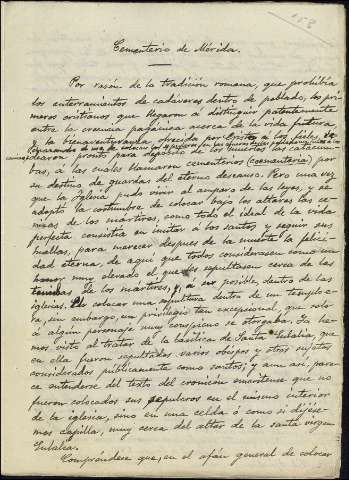 152
Cementerio de Mérida.
Por razón de la tradición romana, que prohibía
los enterramientos de cadáveres dentro de poblado, los pri-
meros cristianos que llegaron á distinguir patentemente
entre la creencia pagánica acerca de la vida futura
y la bienaventuranza ofrecida por Cristo á los fieles,
dearon pronto para depósito de los muertos las catacum-
bas, á las cuales llamaron cementerios (coemeteria) por
su destino de guardas del eterno descanso. Pero una vez
que la Iglesia pudo vivir al amparo de las leyes, y se
adoptó la costumbre de colocar bajo los altares las ce-
nizas de los mártires, como todo el ideal de la vida
perfecta consistía en imitar á los santos y seguir sus
huellas, para merecer despues de la muerte la felici-
dad eterna, de aquí que todos considerasen como
honor muy elevado el que se les sepultasen cerca de las
de los mártires, y, á ser posible, dentro de las
iglesias. El colocar una sepultura dentro de un templo
ra, sin embargo, un privilegio tan excepcional, que solo
á algún personaje muy conspicuo se otorgaba. Ya he-
mos visto al tratar de la basílica de Santa Eulalia, que
en ella fueron sepultados varios obispos y otros sujetos
considerados públicamente como santos; y aun así, pare-
ce entenderse del texto del cronicón emeritense que no
fueron colocados sus sepulcros en el mismo interior
de la iglesia, sino en una celda ó como si dijése-
mos capilla, muy cerca del altar de la santa virgen
Eulalia.
Compréndese que, en el afán general de colocar